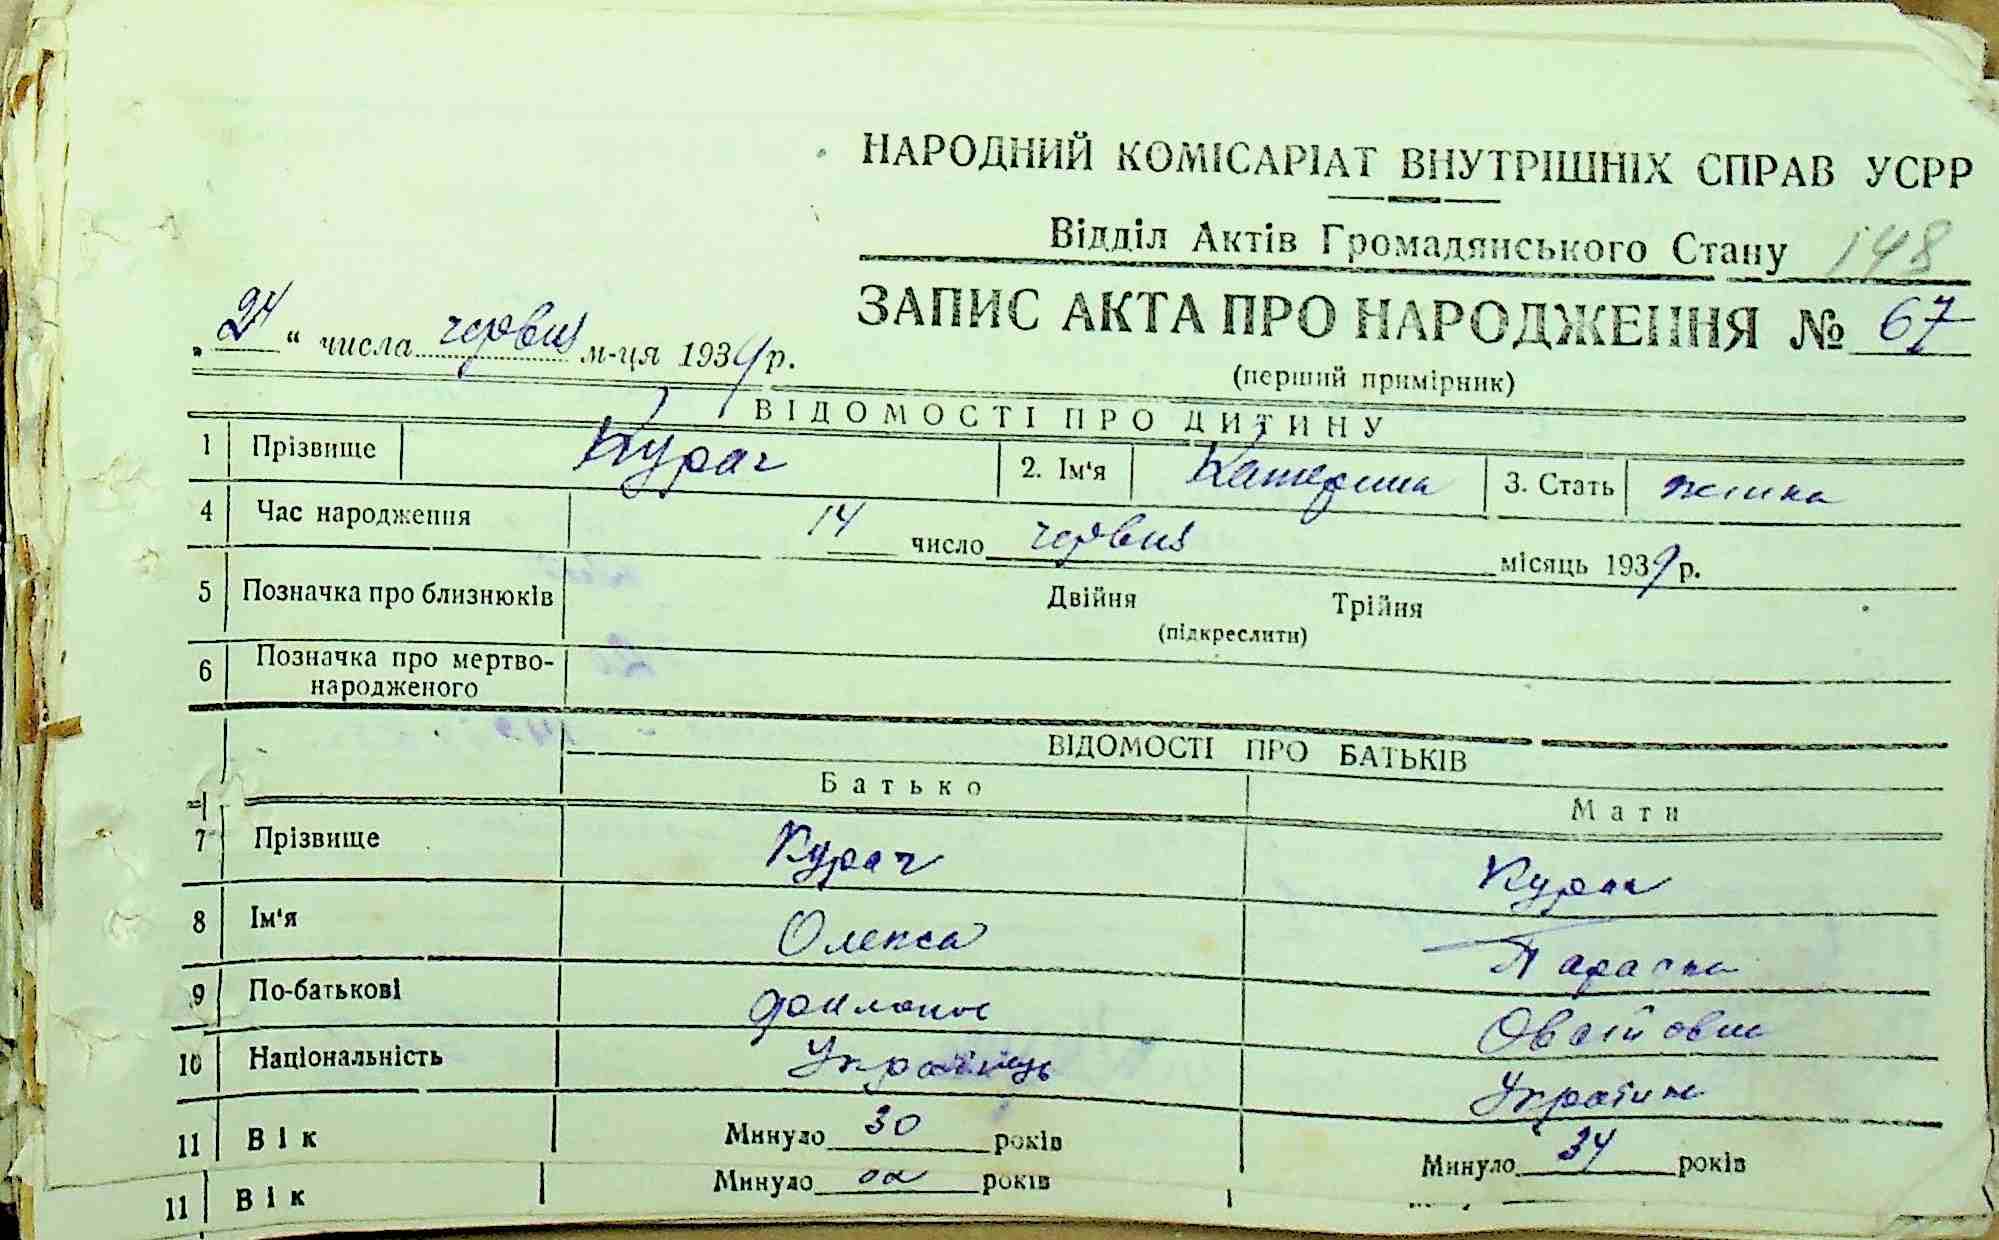 НАРОДНИЙ КОМІСАРІАТ ВНУТРІШНІХ СПРАВ УСРР
Відділ Актів Громадянського Стану 148
ЗАПИС АКТА ПРО НАРОДЖЕННЯ № 67
(перший примірник)
„24“ числа червня м-ця 1934 р.
ВІДОМОСТІ ПРО ДИТИНУ
1 Прізвище Курач 2. Ім'я Катерина 3. Стать жінка
4 Час народження 14 число червня місяць 193 р.
5 Позначка про близнюків Двійня Трійня
(підкреслити)
6 Позначка про мертво-
народженого
ВІДОМОСТІ ПРО БАТЬКІВ
Батько Мати
7 Прізвище Курач Курач
8 Ім'я Олекса Параска
9 По-батькові
10 Національність Українець Українка
11 Вік Минуло 30 років Минуло 34 років
11 Вік Минуло років